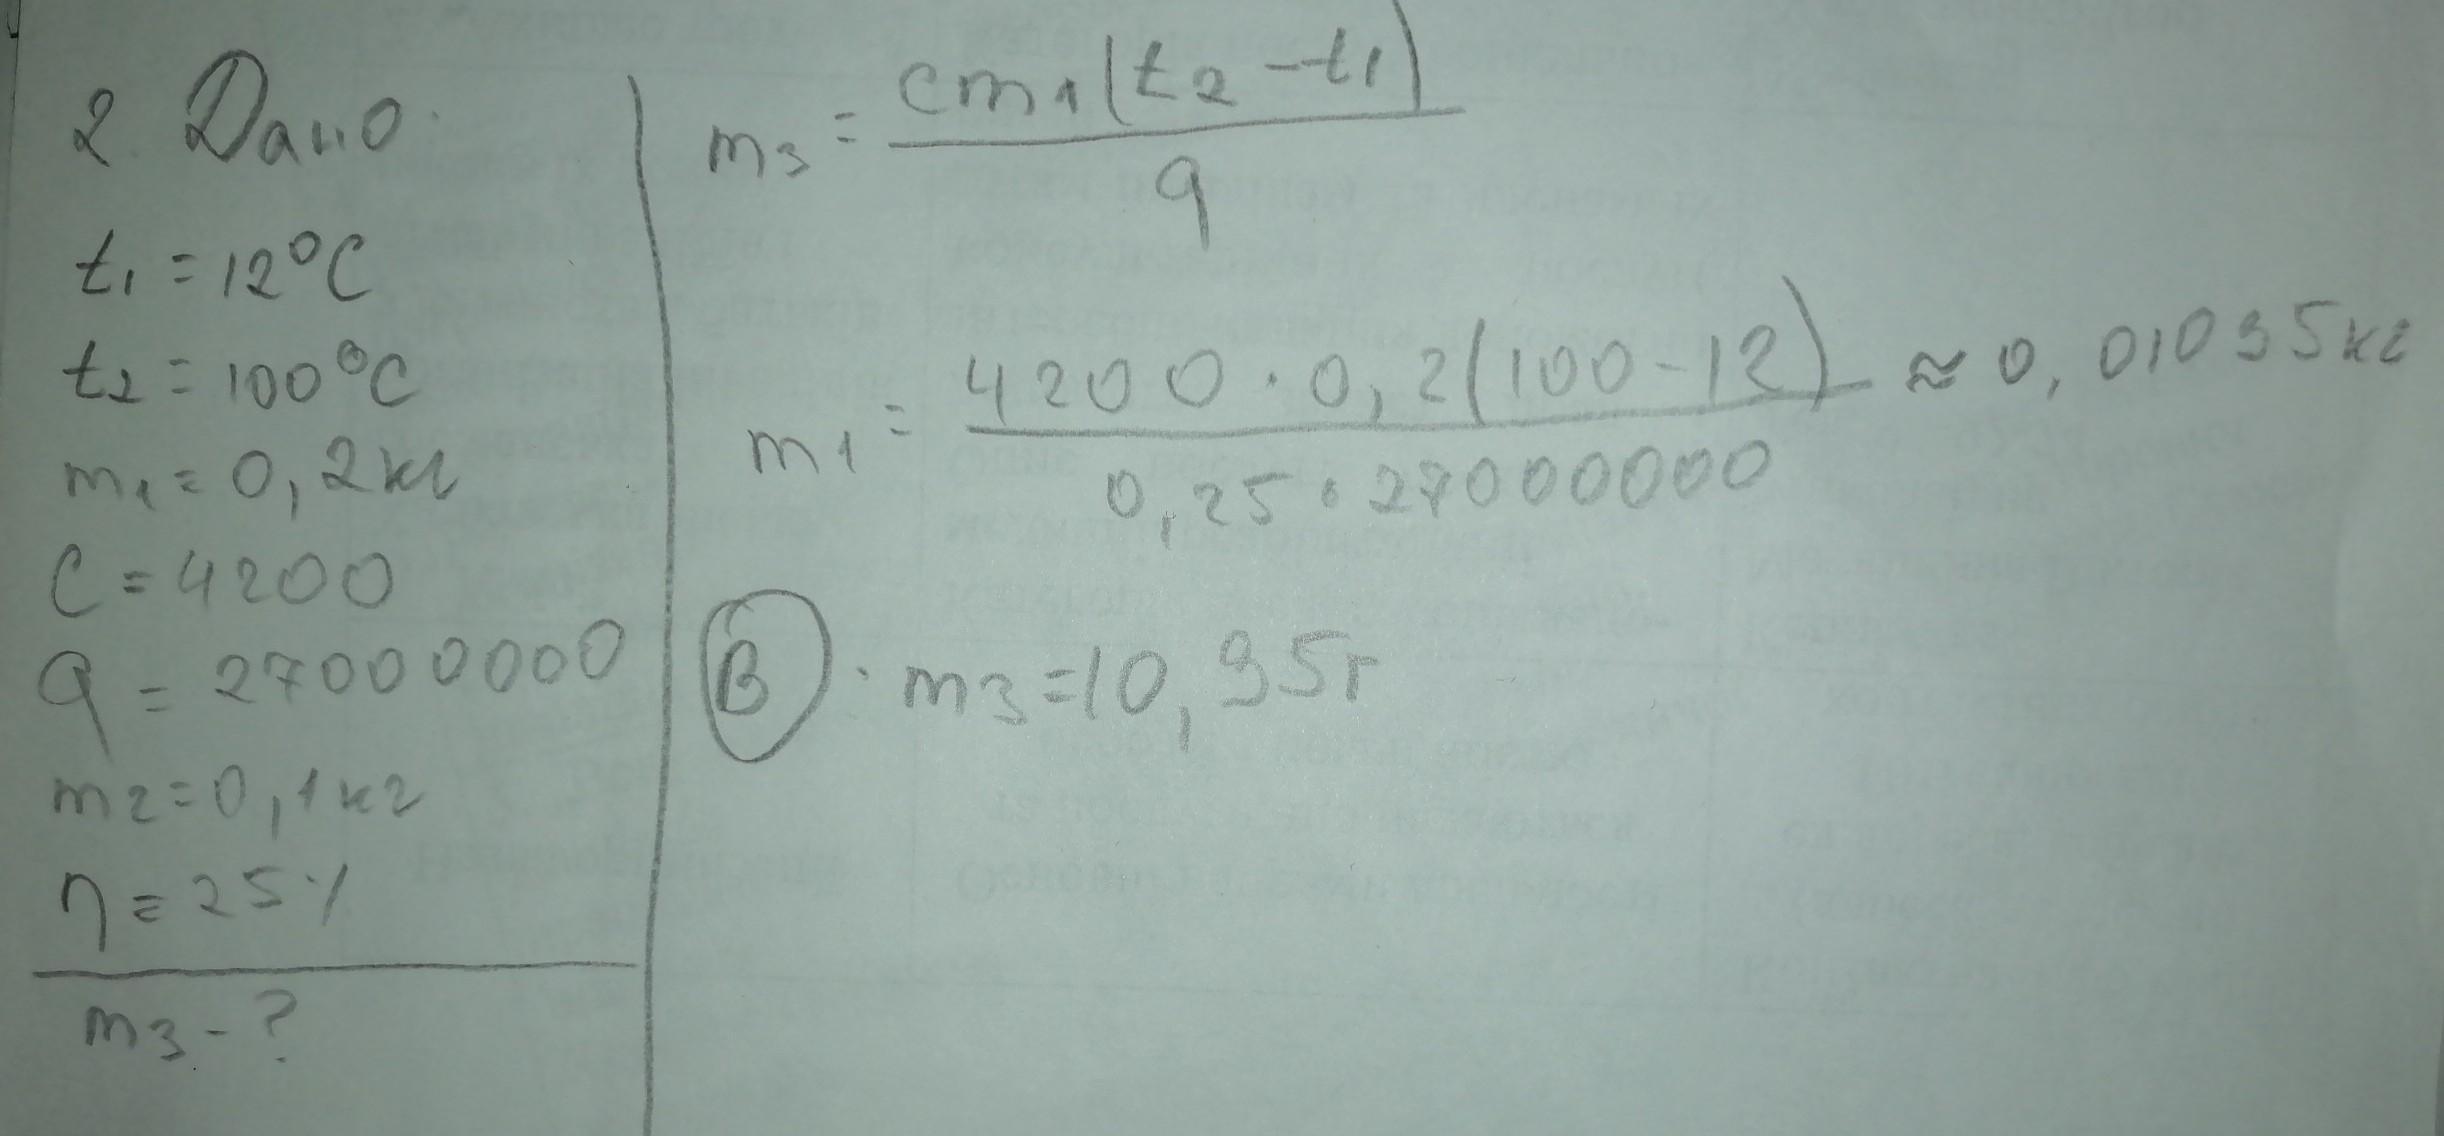 2. Дано
t₁ = 12°C
t₂ = 100°C
m₁ = 0,2 кг
C = 4200
q = 27000000
m₂ = 0,1 кг
η = 25%
m₃ - ?
m₃ = cm₁(t₂ - t₁) / q
m₁ = 4200 · 0,2(100 - 12) / 0,25 · 27000000 ≈ 0,01095 кг
В. m₃ = 10,95 г